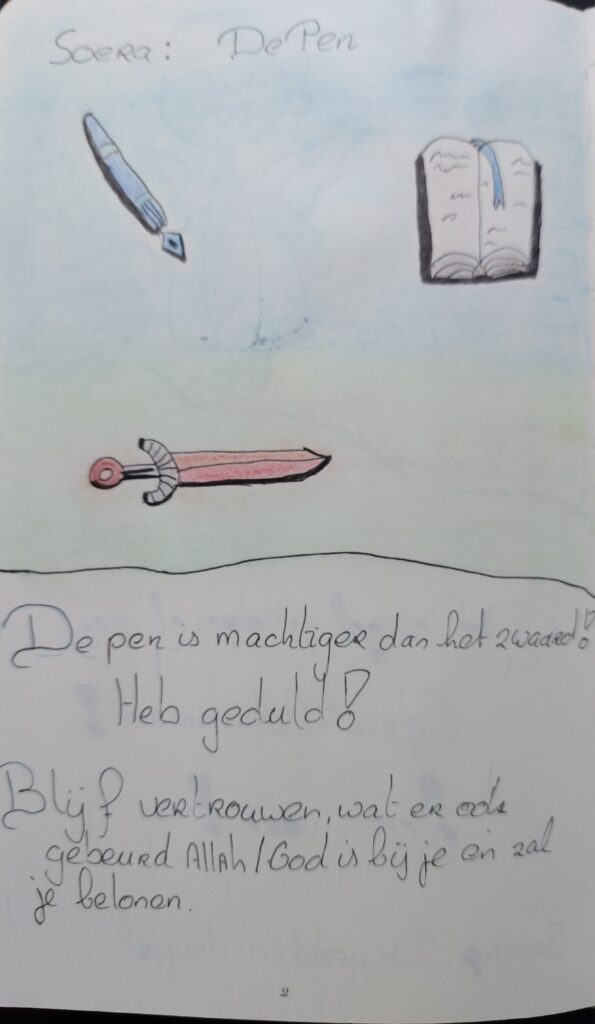 Soera: De Pen
De pen is machtiger dan het zwaard!
Heb geduld!
Blijf vertrouwen, wat er ook
gebeurd Allah/God is bij je en zal
je belonen.
2